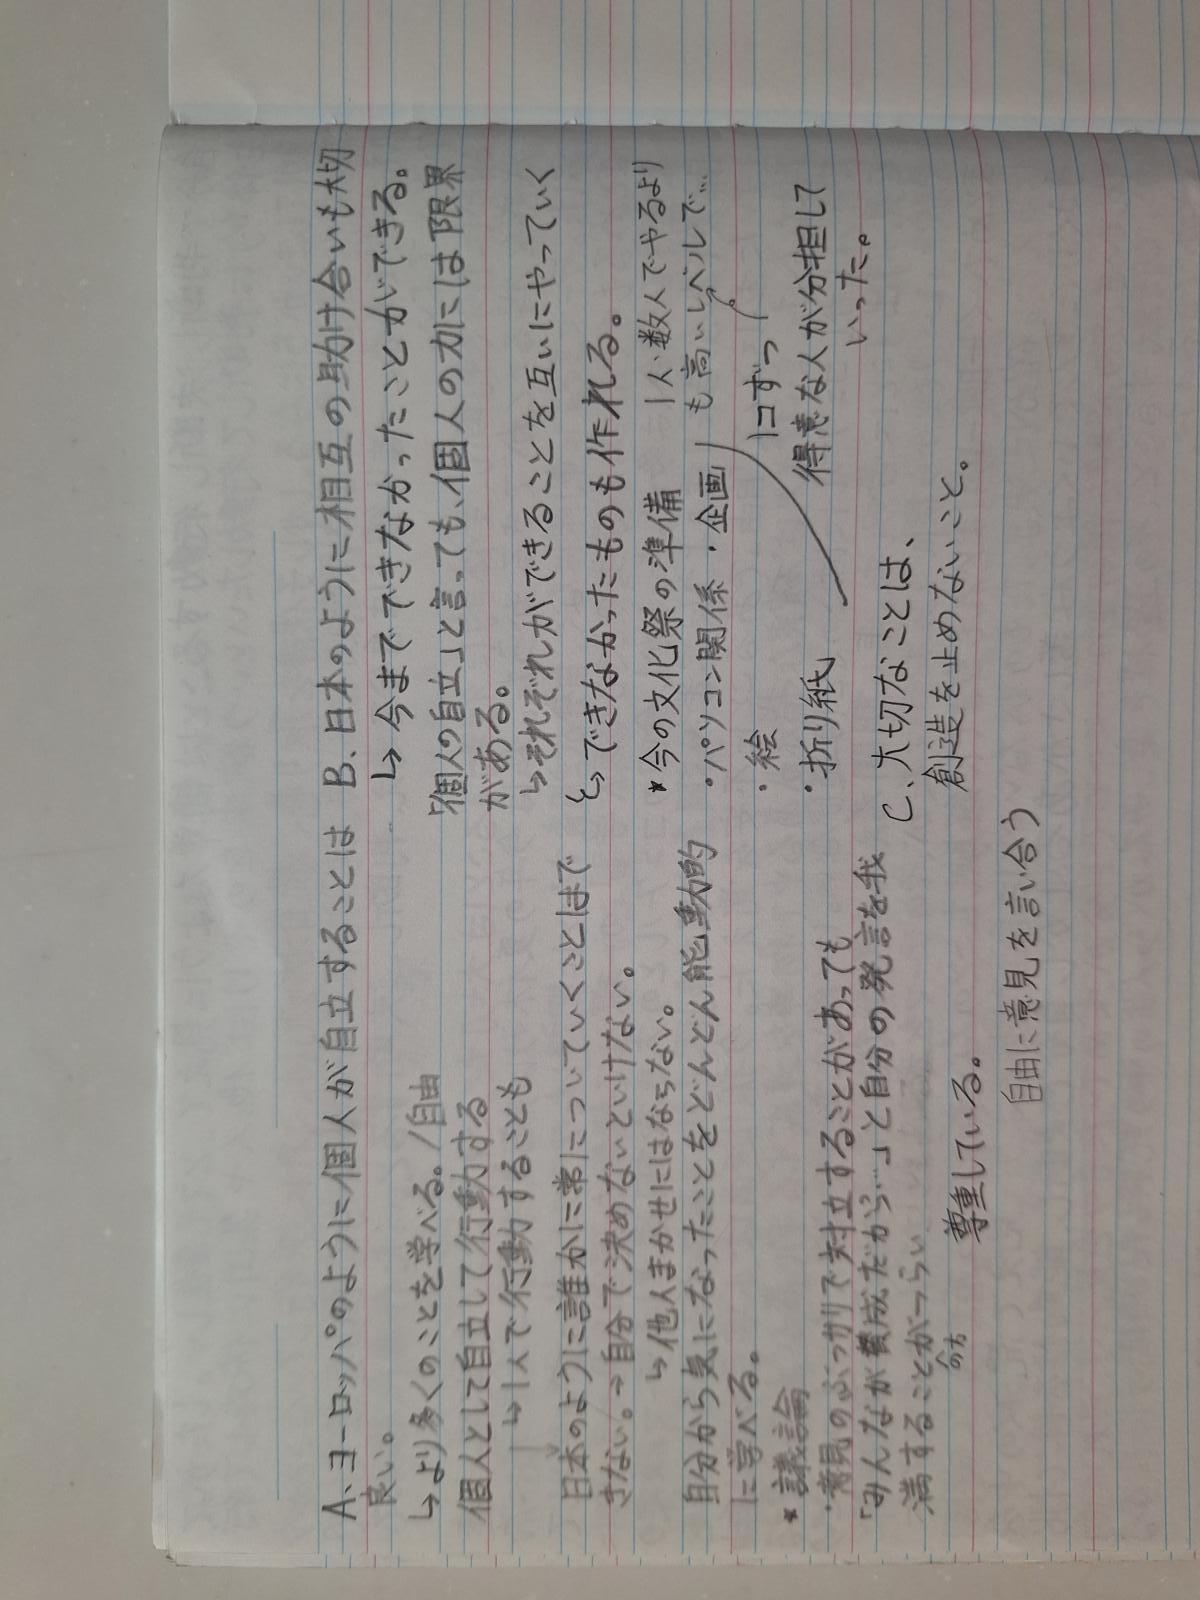 A、ヨーロッパのように個人が自立することは
良い。
↳より多くのことを学べる。/自由
個人として自立して行動する
↳1人で行動することも
日本のように誰かに常についていくことはで
きない。→自分で決めないといけない。
↳他人まかせにはならない。
自分から気になったことをどんどん能動的
に学べる。
*議論
・意見のぶつかりで対立することがあっても
「みんなが賛成だから…」と自分の発言を我
満することがつらい
のも
尊重している。
自由に意見を言い合う
B、日本のように相互の助け合いも大切
↳今までできなかったことができる。
「個人の自立」と言っても、個人の力には限界
がある。
↳それぞれができることを互いにやっていく
とできなかったものも作れる。
*今の文化祭の準備
・パソコン関係・企画
・絵
・折り紙
1人・数人でやるより
も高いレベルで…
1コずつ
得意な人が分担して
いった。
C、大切なことは、
創造を止めないこと。